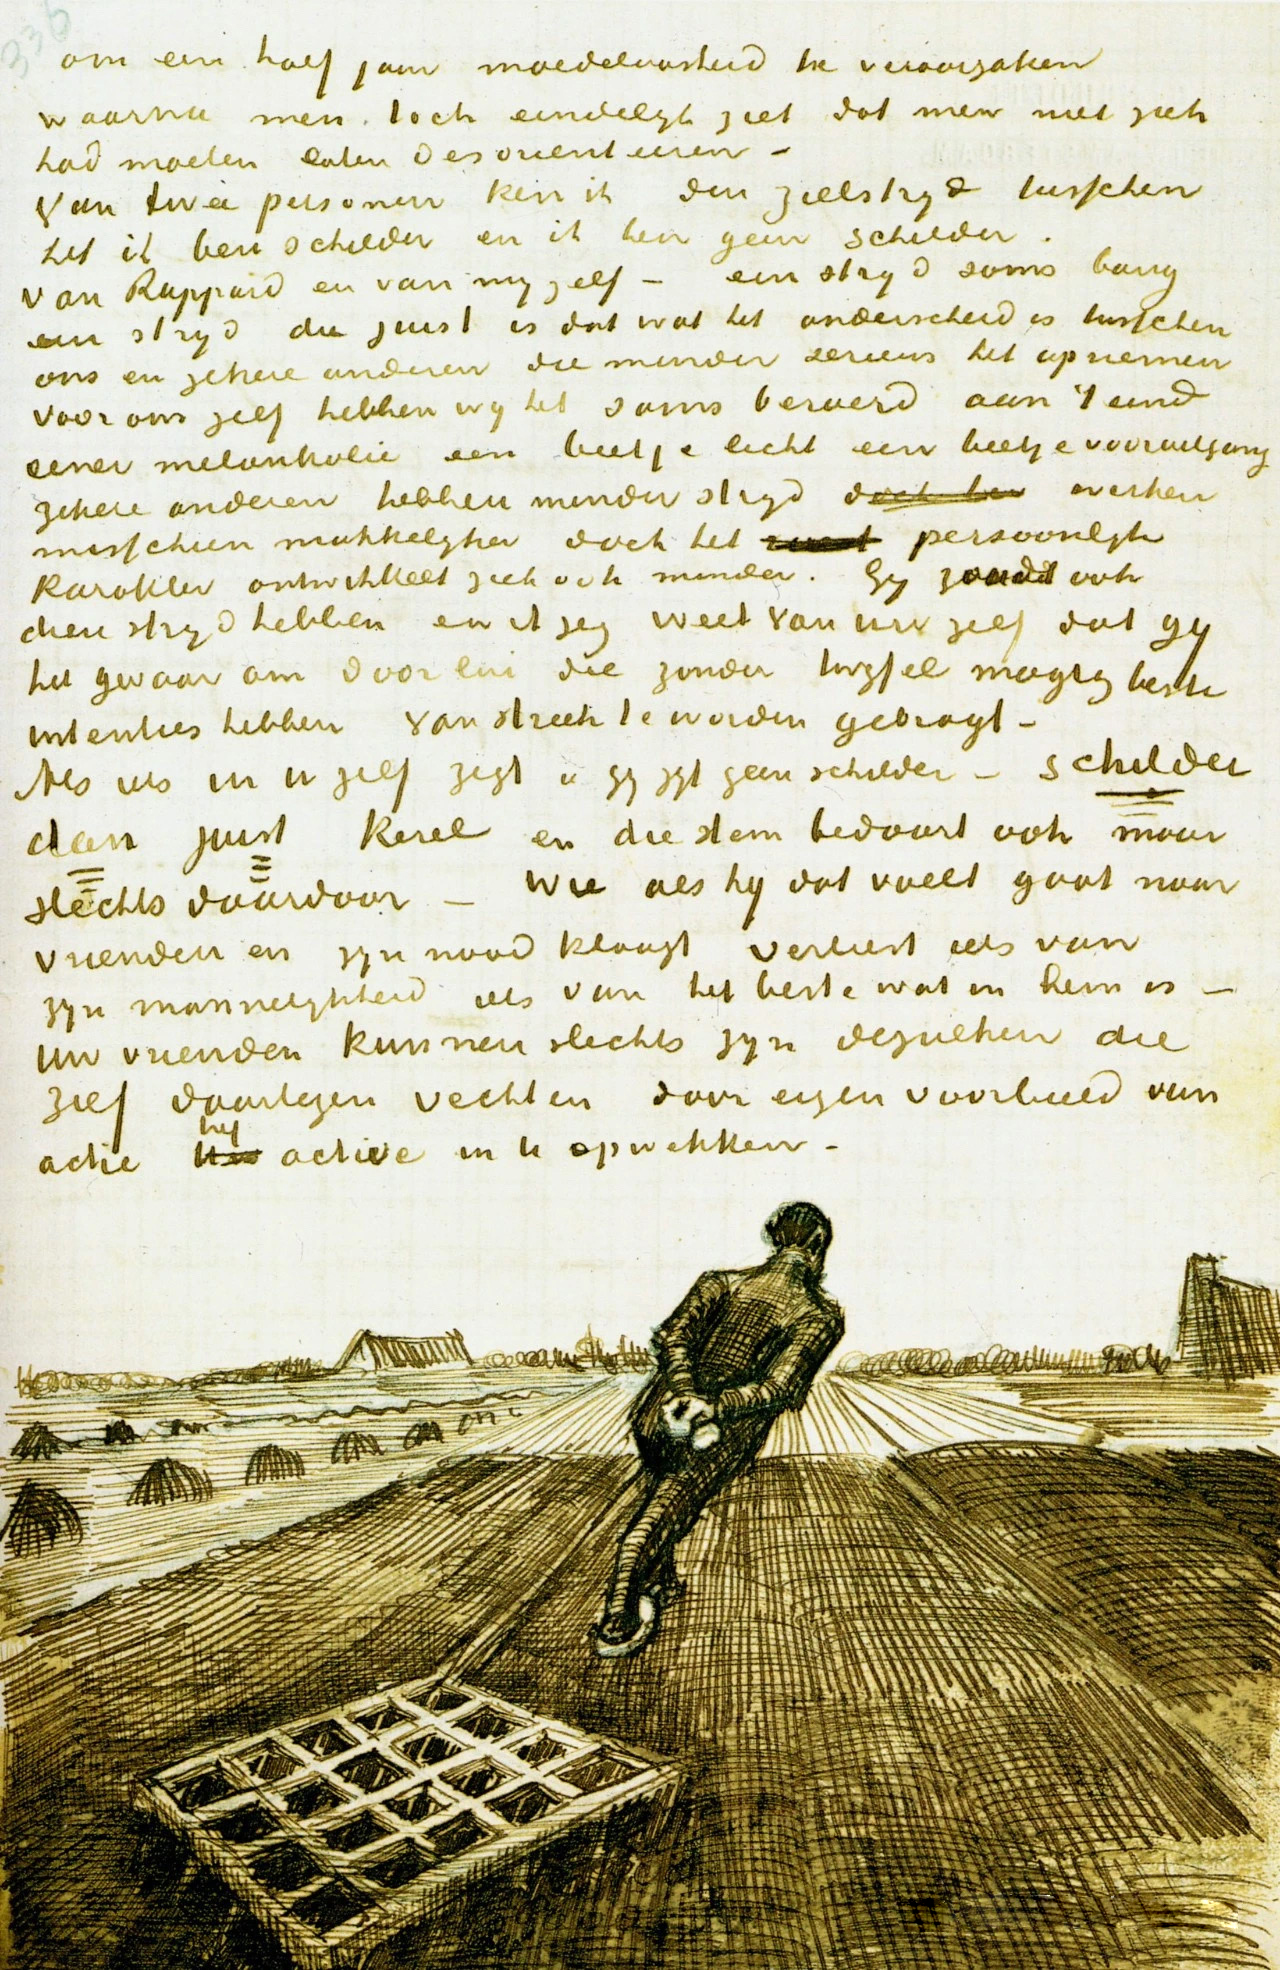 336
om een half jaar moedeloosheid te veroorzaken
waarna men toch eindelyk ziet dat men niet zich
had moeten laten desorienteeren –
Van twee personen ken ik den zielstryd tusschen
het ik ben schilder en ik ben geen schilder.
Van Rappard en van myzelf – een stryd soms bang
een stryd die juist is dat wat het onderscheid is tusschen
ons en zekere anderen die minder serieus het opnemen
voor ons zelf hebben wy het soms beroerd aan 't eind
eener melankolie een beetje licht een beetje vooruitgang
zekere anderen hebben minder stryd werken
misschien makkelyker doch het persoonlyk
karakter ontwikkelt zich ook minder. Gy zoudt ook
dien stryd hebben en ik zeg weet van uw zelf dat gy
het gevaar om door lui die zonder twyfel magtig beste
intenties hebben van streek te worden gebragt –
Als iets in u zelf zegt „gy zyt geen schilder – schilder
dan juist kerel en die stem bedaart ook maar
slechts daardoor – Wie als hy dat voelt gaat naar
vrienden en zyn nood klaagt verliest iets van
zyn mannelykheid iets van het beste wat in hem is –
Uw vrienden kunnen slechts zyn dezulken die
zelf daartegen vechten door eigen voorbeeld van
actie het active in u opwekken –